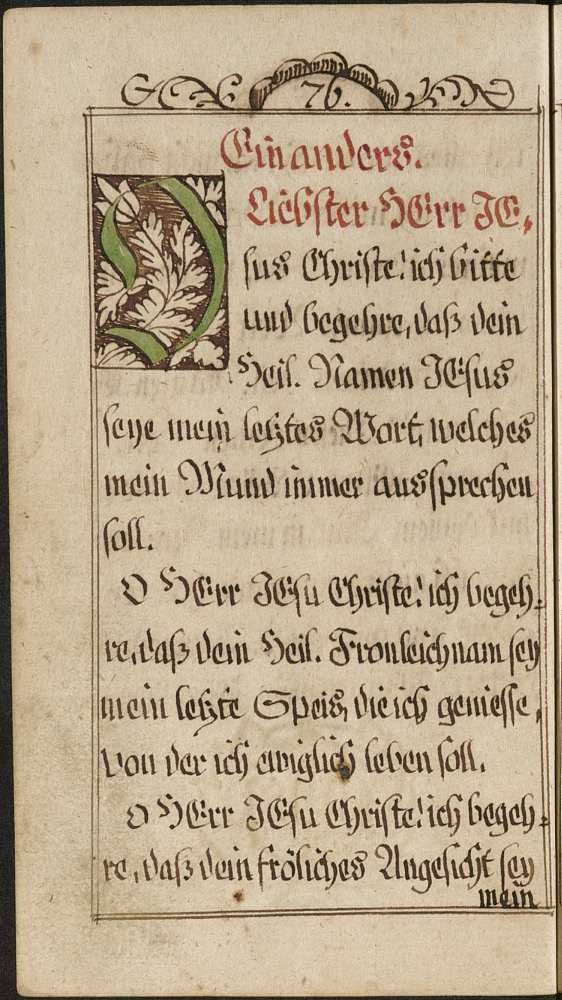 76.
Ein anders.
O Liebster HErr JE,
sus Christe! ich bitte
und begehre, daß dein
Heil. Namen JEsus
seye mein letztes Wort, welches
mein Mund immer aussprechen
soll.
O HErr JEsu Christe! ich begeh⸗
re, daß dein Heil. Fronleichnam sey
mein letzte Speis, die ich geniesse,
von der ich ewiglich leben soll.
O HErr JEsu Christe! ich begeh⸗
re, daß dein fröliches Angesicht sey
mein